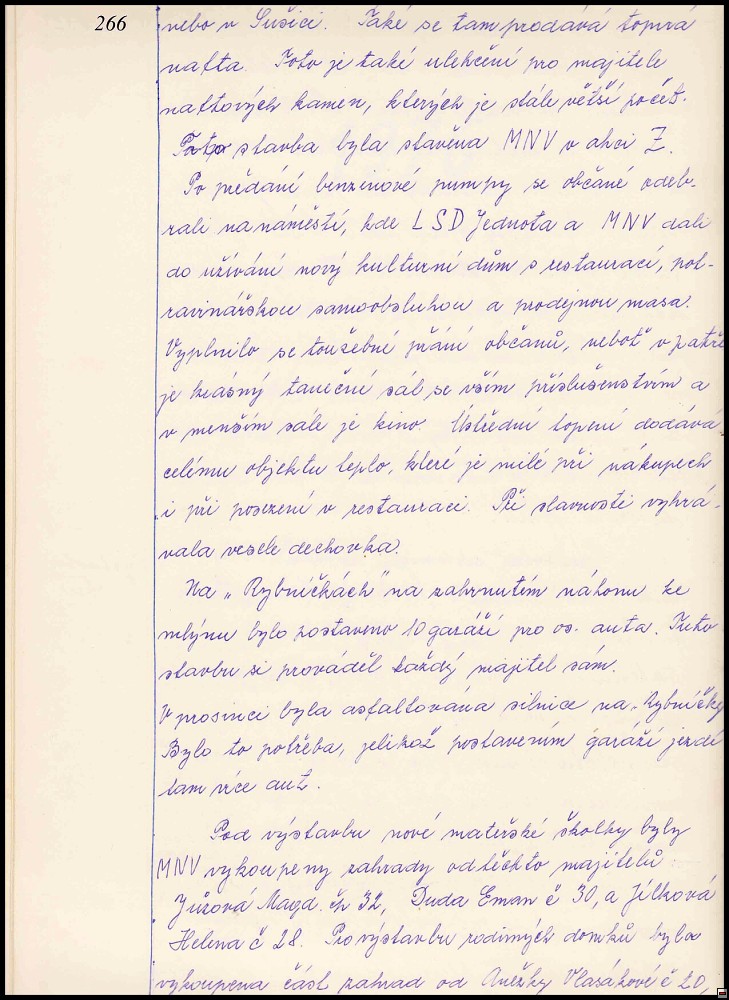 266
nebo v Sušici. Také se tam prodává topná
nafta. Toto je také ulehčení pro majitele
naftových kamen, kterých je stále větší počet.
Tato stavba byla stavěna MNV v akci Z.
Po předání benzinové pumpy se občané odeb-
rali na náměstí, kde LSD Jednota a MNV dali
do užívání nový kulturní dům s restaurací, pot-
ravinářskou samoobsluhou a prodejnou masa.
Vyplnilo se toužebné přání občanů, neboť v patře
je krásný taneční sál se vším příslušenstvím a
v menším sále je kino. Ústřední topení dodává
celému objektu teplo, které je milé při nákupech
i při posezení v restauraci. Při slavnosti vyhrá-
vala vesele dechovka.
Na „Rybníčkách" na zahrnutém náhonu ke
mlýnu bylo postaveno 10 garáží pro os. auta. Tuto
stavbu si prováděl každý majitel sám.
V prosinci byla asfaltována silnice na „Rybníčky
Bylo to potřeba, jelikož postavením garáží jezdí
tam více aut.
Pod výstavbu nové mateřské školky byly
MNV vykoupeny zahrady od těchto majitelů
Jůzová Magd. čp 32, Duda Eman č 30, a Jílková
Helena č 28. Pro výstavbu rodinných domků byla
vykoupena část zahrad od Anežky Vlasákové č 20,